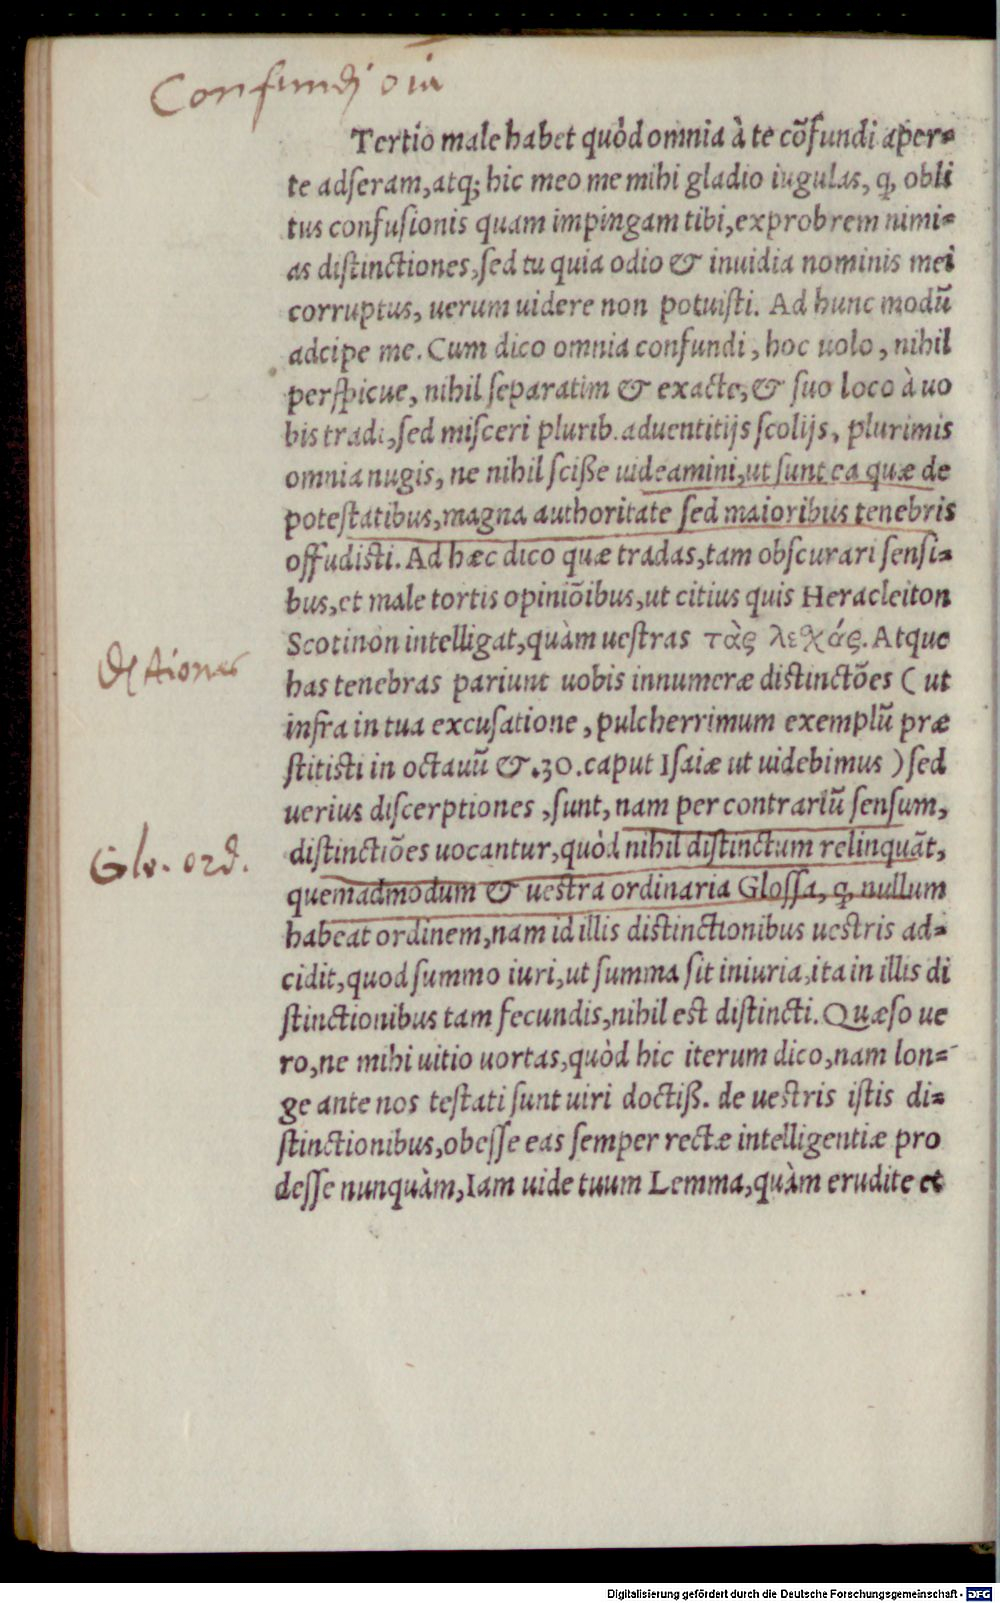 Confundi oīa
Tertio male habet quòd omnia à te cõfundi aper-
te adseram, atq; hic meo me mihi gladio iugulas, q, obli
tus confusionis quam impingam tibi, exprobrem nimi-
as distinctiones, sed tu quia odio & inuidia nominis mei
corruptus, uerum uidere non potuisti. Ad hunc modũ
adcipe me. Cum dico omnia confundi, hoc uolo, nihil
perspicue, nihil separatim & exacte, & suo loco à uo
bis tradi, sed misceri plurib. aduentitijs scolijs, plurimis
omnia nugis, ne nihil sciße uideamini, ut sunt ea quæ de
potestatibus, magna authoritate sed maioribus tenebris
offudisti. Ad hæc dico quæ tradas, tam obscurari sensi-
bus, et male tortis opiniõibus, ut citius quis Heracleiton
Scotinon intelligat, quàm uestras τὰς λεχάς. Atque
has tenebras pariunt uobis innumeræ distinctões ( ut
infra in tua excusatione, pulcherrimum exemplũ præ
stitisti in octauũ &.30.caput Isaiæ ut uidebimus ) sed
uerius discerptiones, sunt, nam per contrariũ sensum,
distinctiões uocantur, quòd nihil distinctum relinquãt,
quemadmodum & uestra ordinaria Glossa, q, nullum
habeat ordinem, nam id illis distinctionibus uestris ad-
cidit, quod summo iuri, ut summa sit iniuria, ita in illis di
stinctionibus tam fecundis, nihil est distincti. Quæso ue
ro, ne mihi uitio uortas, quòd hic iterum dico, nam lon-
ge ante nos testati sunt uiri doctiß. de uestris istis di-
stinctionibus, obesse eas semper rectæ intelligentiæ pro
desse nunquàm, Iam uide tuum Lemma, quàm erudite et
Glo. ord.
Digitalisierung gefördert durch die Deutsche Forschungsgemeinschaft - DFG